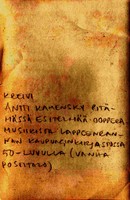 KREIVI
ANTTI KAMENSKY PITÄ-
MÄSSÄ ESITELMÄÄ DOPPLER
MUSIIKISTA LAPPEENRAN-
NAN KAUPUNGINKIRJASTOSSA
50-LUVULLA (VANHA
POSTITALO)